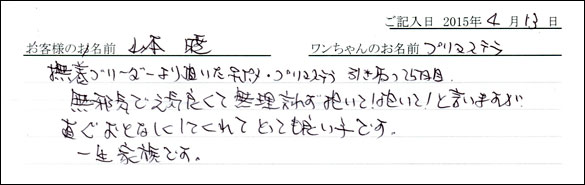 ご記入日 2015年 4月 13日
お客様のお名前 山本 暁 ワンちゃんのお名前 プリマステラ
ブリーダーより頂いた プリマステラ 引き取って5日目
無邪気で元気良くて無理 抱いて!抱いて!と言いますが
直ぐおとなしくしてくれてとっても良い子です。
一生家族です。